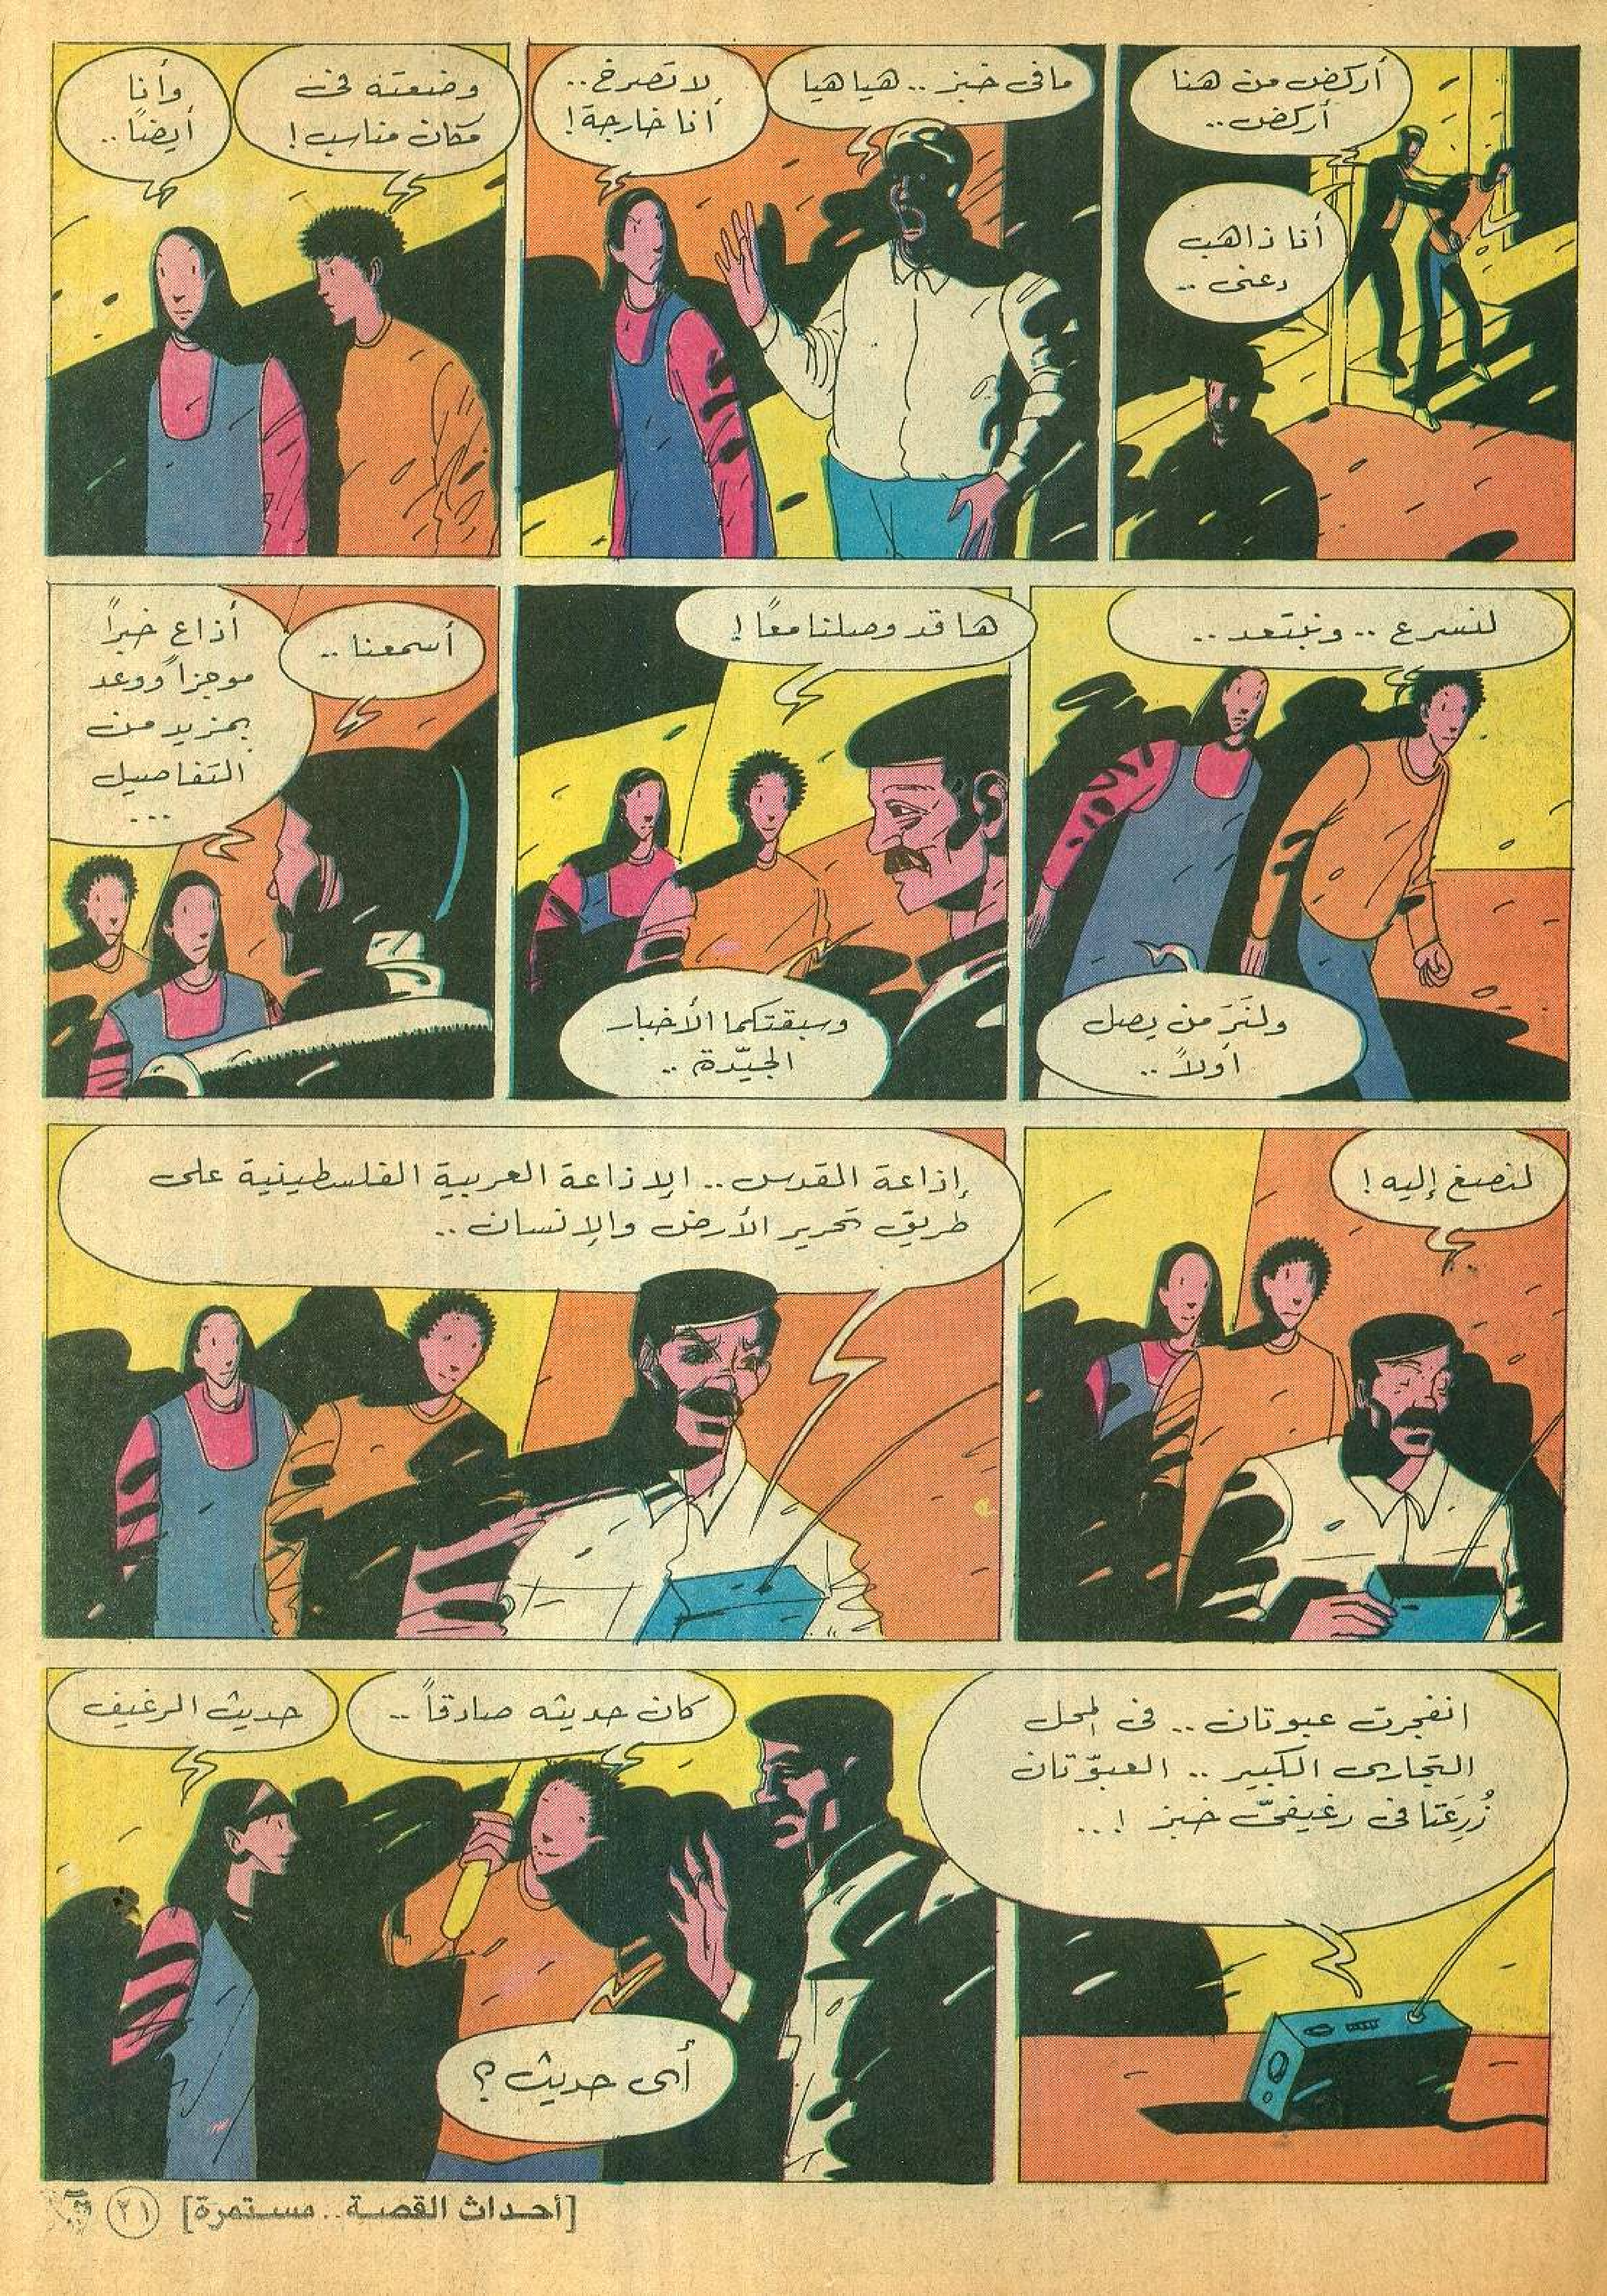 أركض من هنا
أركض..
أنا ذاهب
دعنى ..
مافى خبز .. هيا هيا
لا تصرخ ..
أنا خارجة !
وضعته فى
مكان مناسب !
وأنا
أيضاً ..
لنسرع .. ونبتعد ..
ولنَرَ من يصل
أولاً ..
ها قد وصلنا معاً !
وسبقتكما الأخبار
الجيّدة ..
أسمعنا ..
أذاع خبراً
موجزاً ووعد
بمزيد من
التفاصيل
...
لنصغ إليه !
إذاعة القدس .. الإذاعة العربية الفلسطينية على
طريق تحرير الأرض والإنسان ..
انفجرت عبوتان .. فى المحل
التجارى الكبير .. العبوّتان
زُرِعَتا فى رغيفىّ خبز !...
كان حديثه صادقاً ..
أى حديث ؟
حديث الرغيف
[أحداث القصة .. مستمرة]
٢١